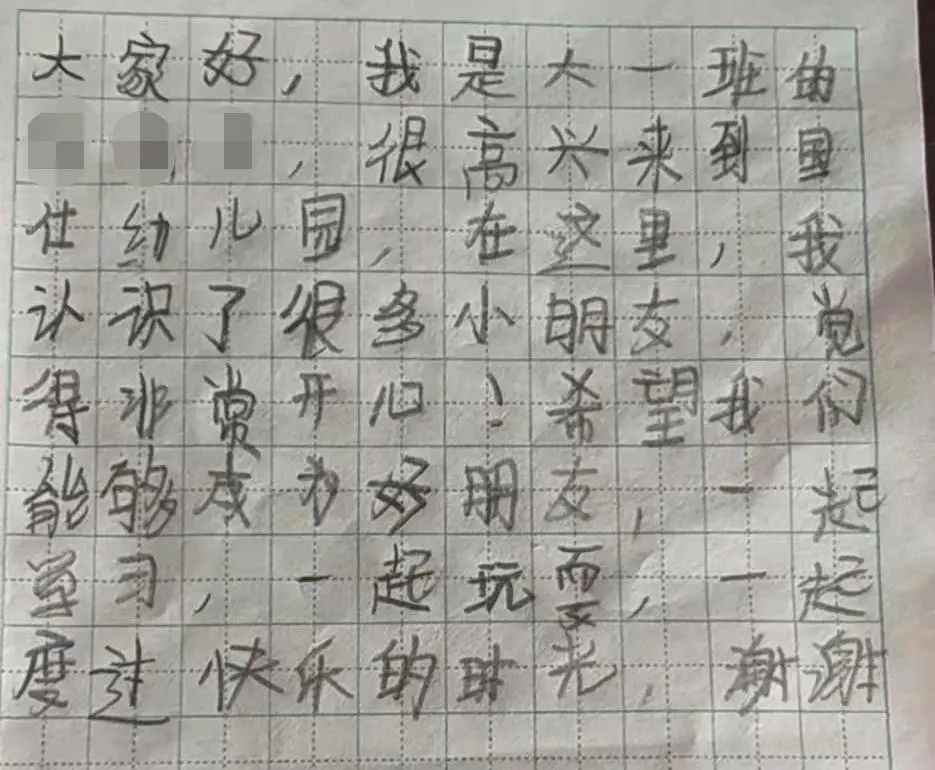 大家好,我是大一班的
,很高兴来到国
仕幼儿园,在这里,我
认识了很多小朋友,觉
得非常开心!希望我们
能够成为好朋友,一起
学习,一起玩耍,一起
度过快乐的时光,谢谢